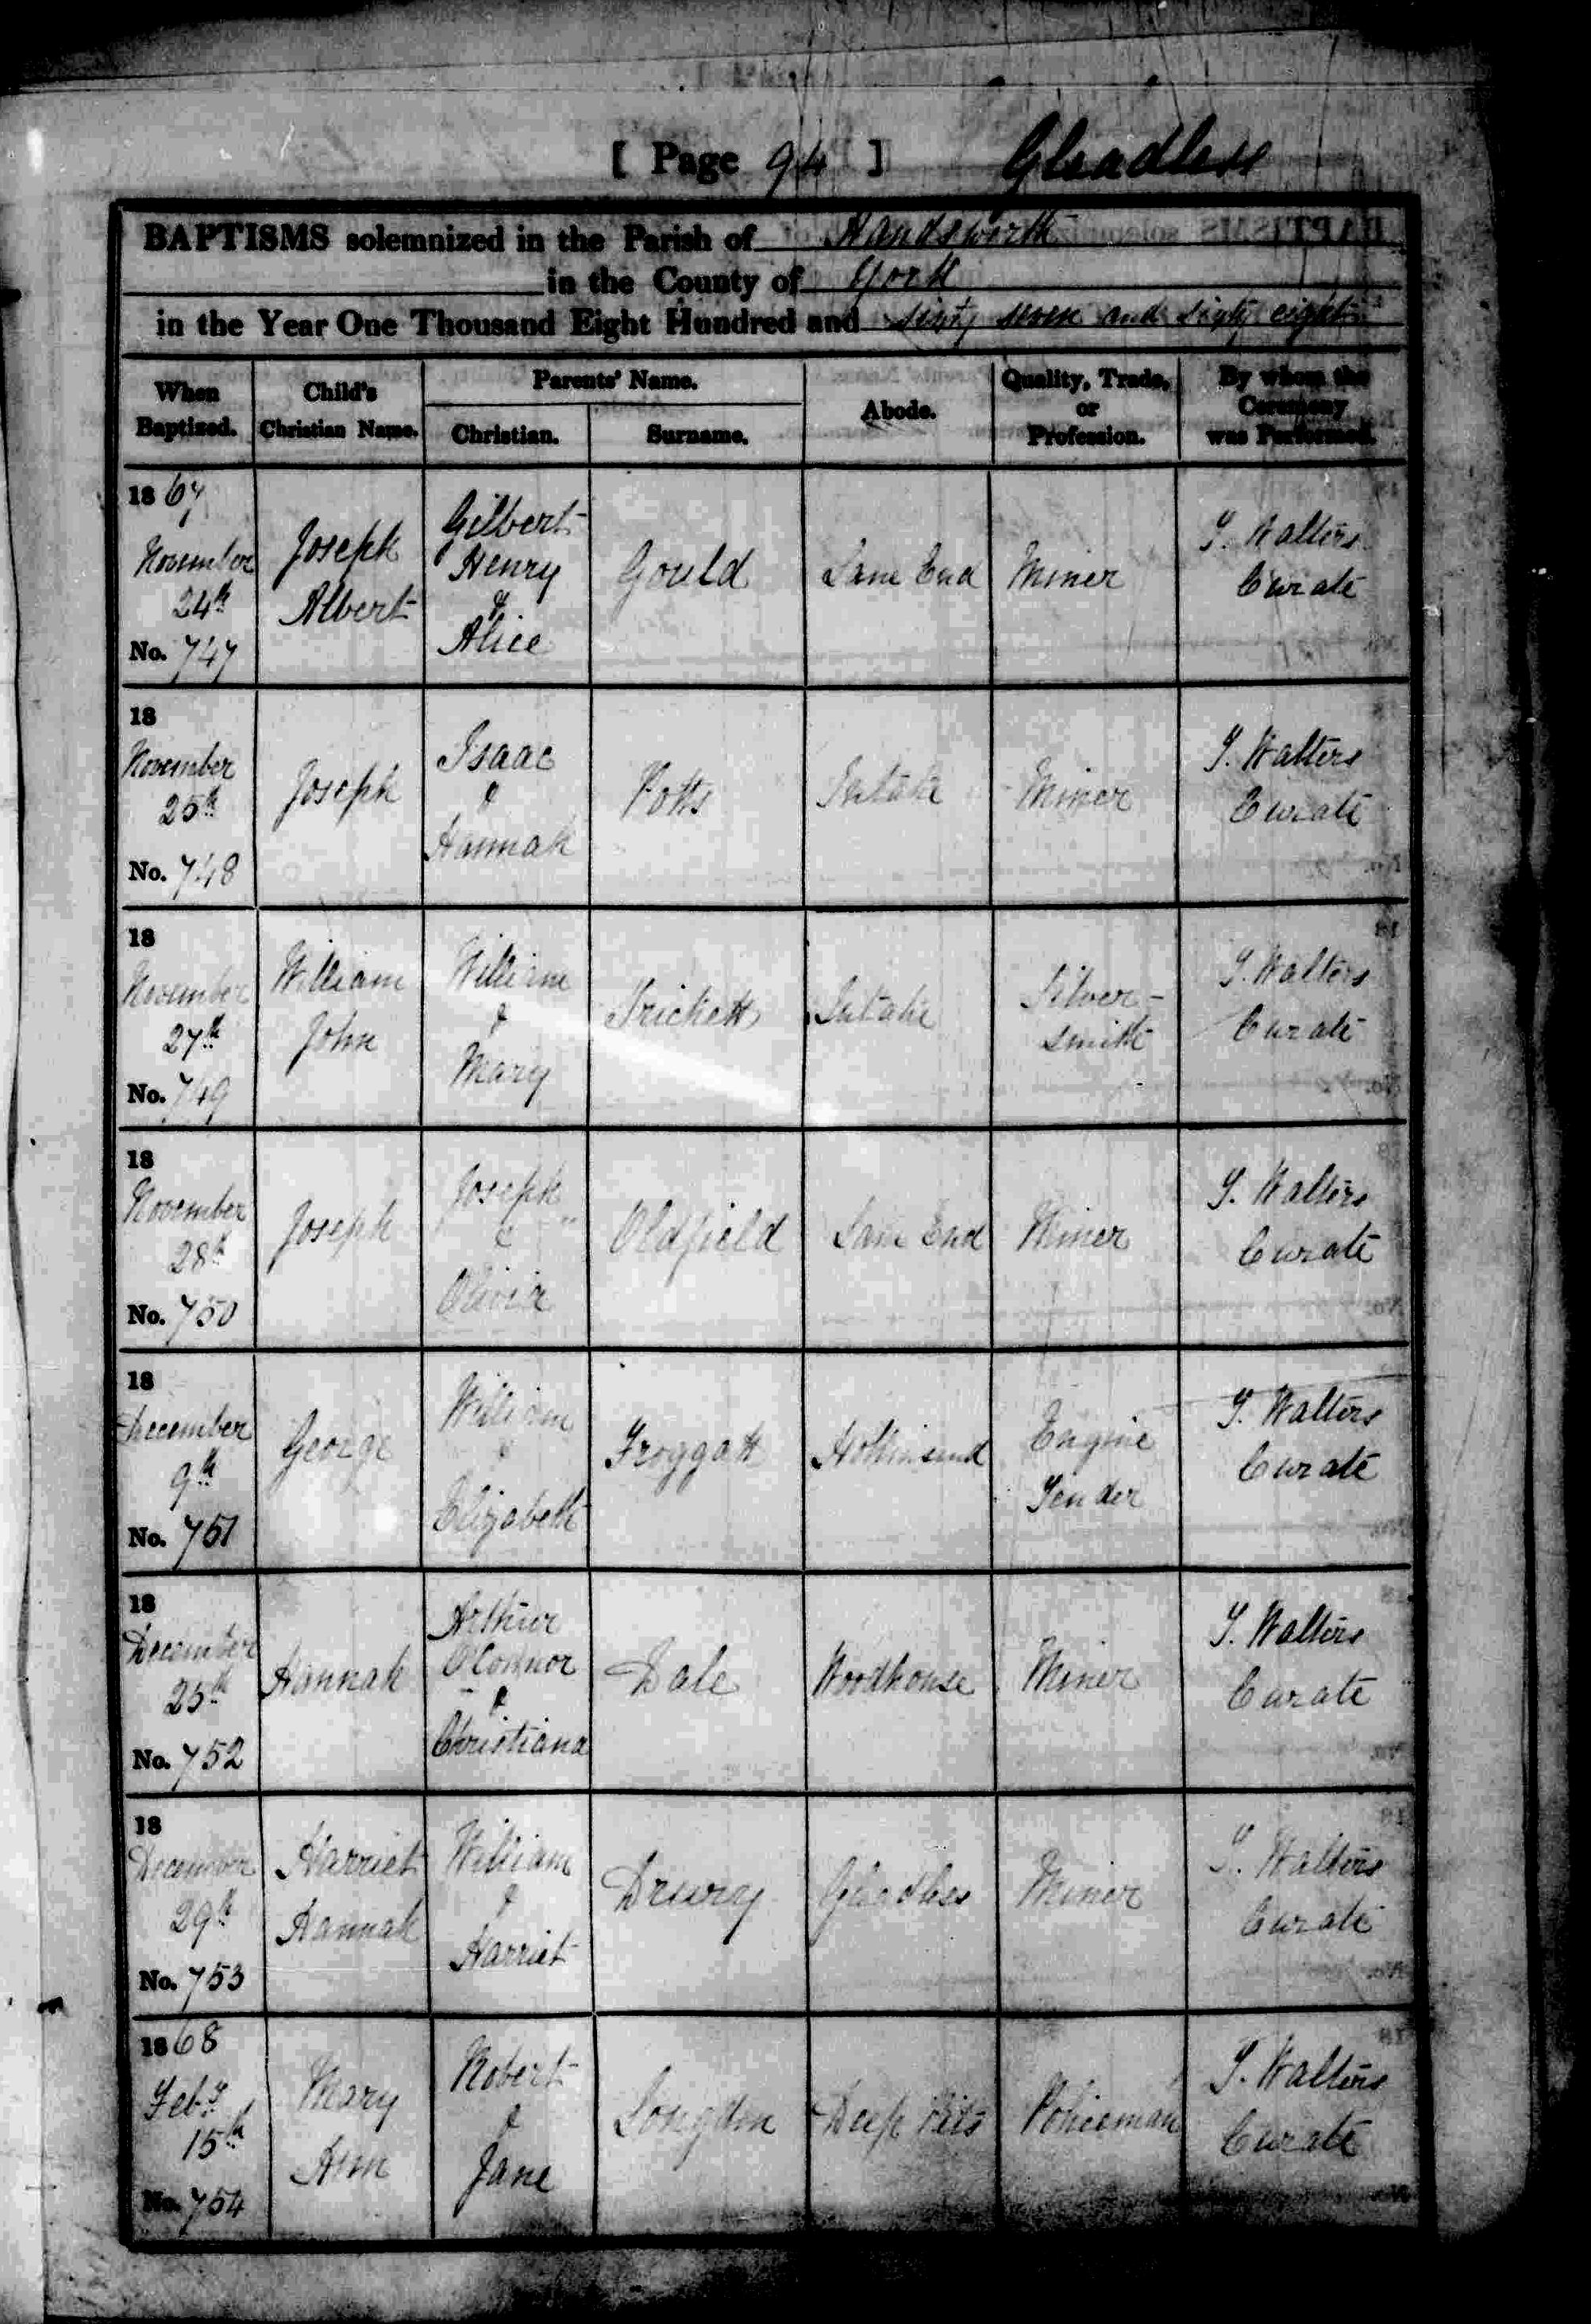 [ Page 94 ] Gleadless
BAPTISMS solemnized in the Parish of Handsworth
in the County of York
in the Year One Thousand Eight Hundred and sixty seven and sixty eight
When Baptized.
Child's Christian Name.
Parents' Name.
Christian.
Surname.
Abode.
Quality, Trade, or Profession.
By whom the Ceremony was Performed.
1867
November
24th
No. 747
Joseph
Albert
Gilbert
Henry
&
Alice
Gould
Lane End
Miner
T. Walters
Curate
18
November
25th
No. 748
Joseph
Isaac
&
Hannah
Potts
Intake
Miner
T. Walters
Curate
18
November
27th
No. 749
William
John
William
&
Mary
Trickett
Intake
Silver-
smith
T. Walters
Curate
18
November
28th
No. 750
Joseph
Joseph
&
Olivia
Oldfield
Lane End
Miner
T. Walters
Curate
18
December
9th
No. 751
George
William
&
Elizabeth
Froggatt
Hollinsend
Engine
Tender
T. Walters
Curate
18
December
25th
No. 752
Hannah
Arthur
OConnor
&
Christiana
Dale
Woodhouse
Miner
T. Walters
Curate
18
December
29th
No. 753
Harriet
Hannah
William
&
Harriet
Drury
Gleadless
Miner
T. Walters
Curate
1868
Feby
15th
No. 754
Mary
Ann
Robert
&
Jane
Longdon
Deep Pits
Policeman
T. Walters
Curate